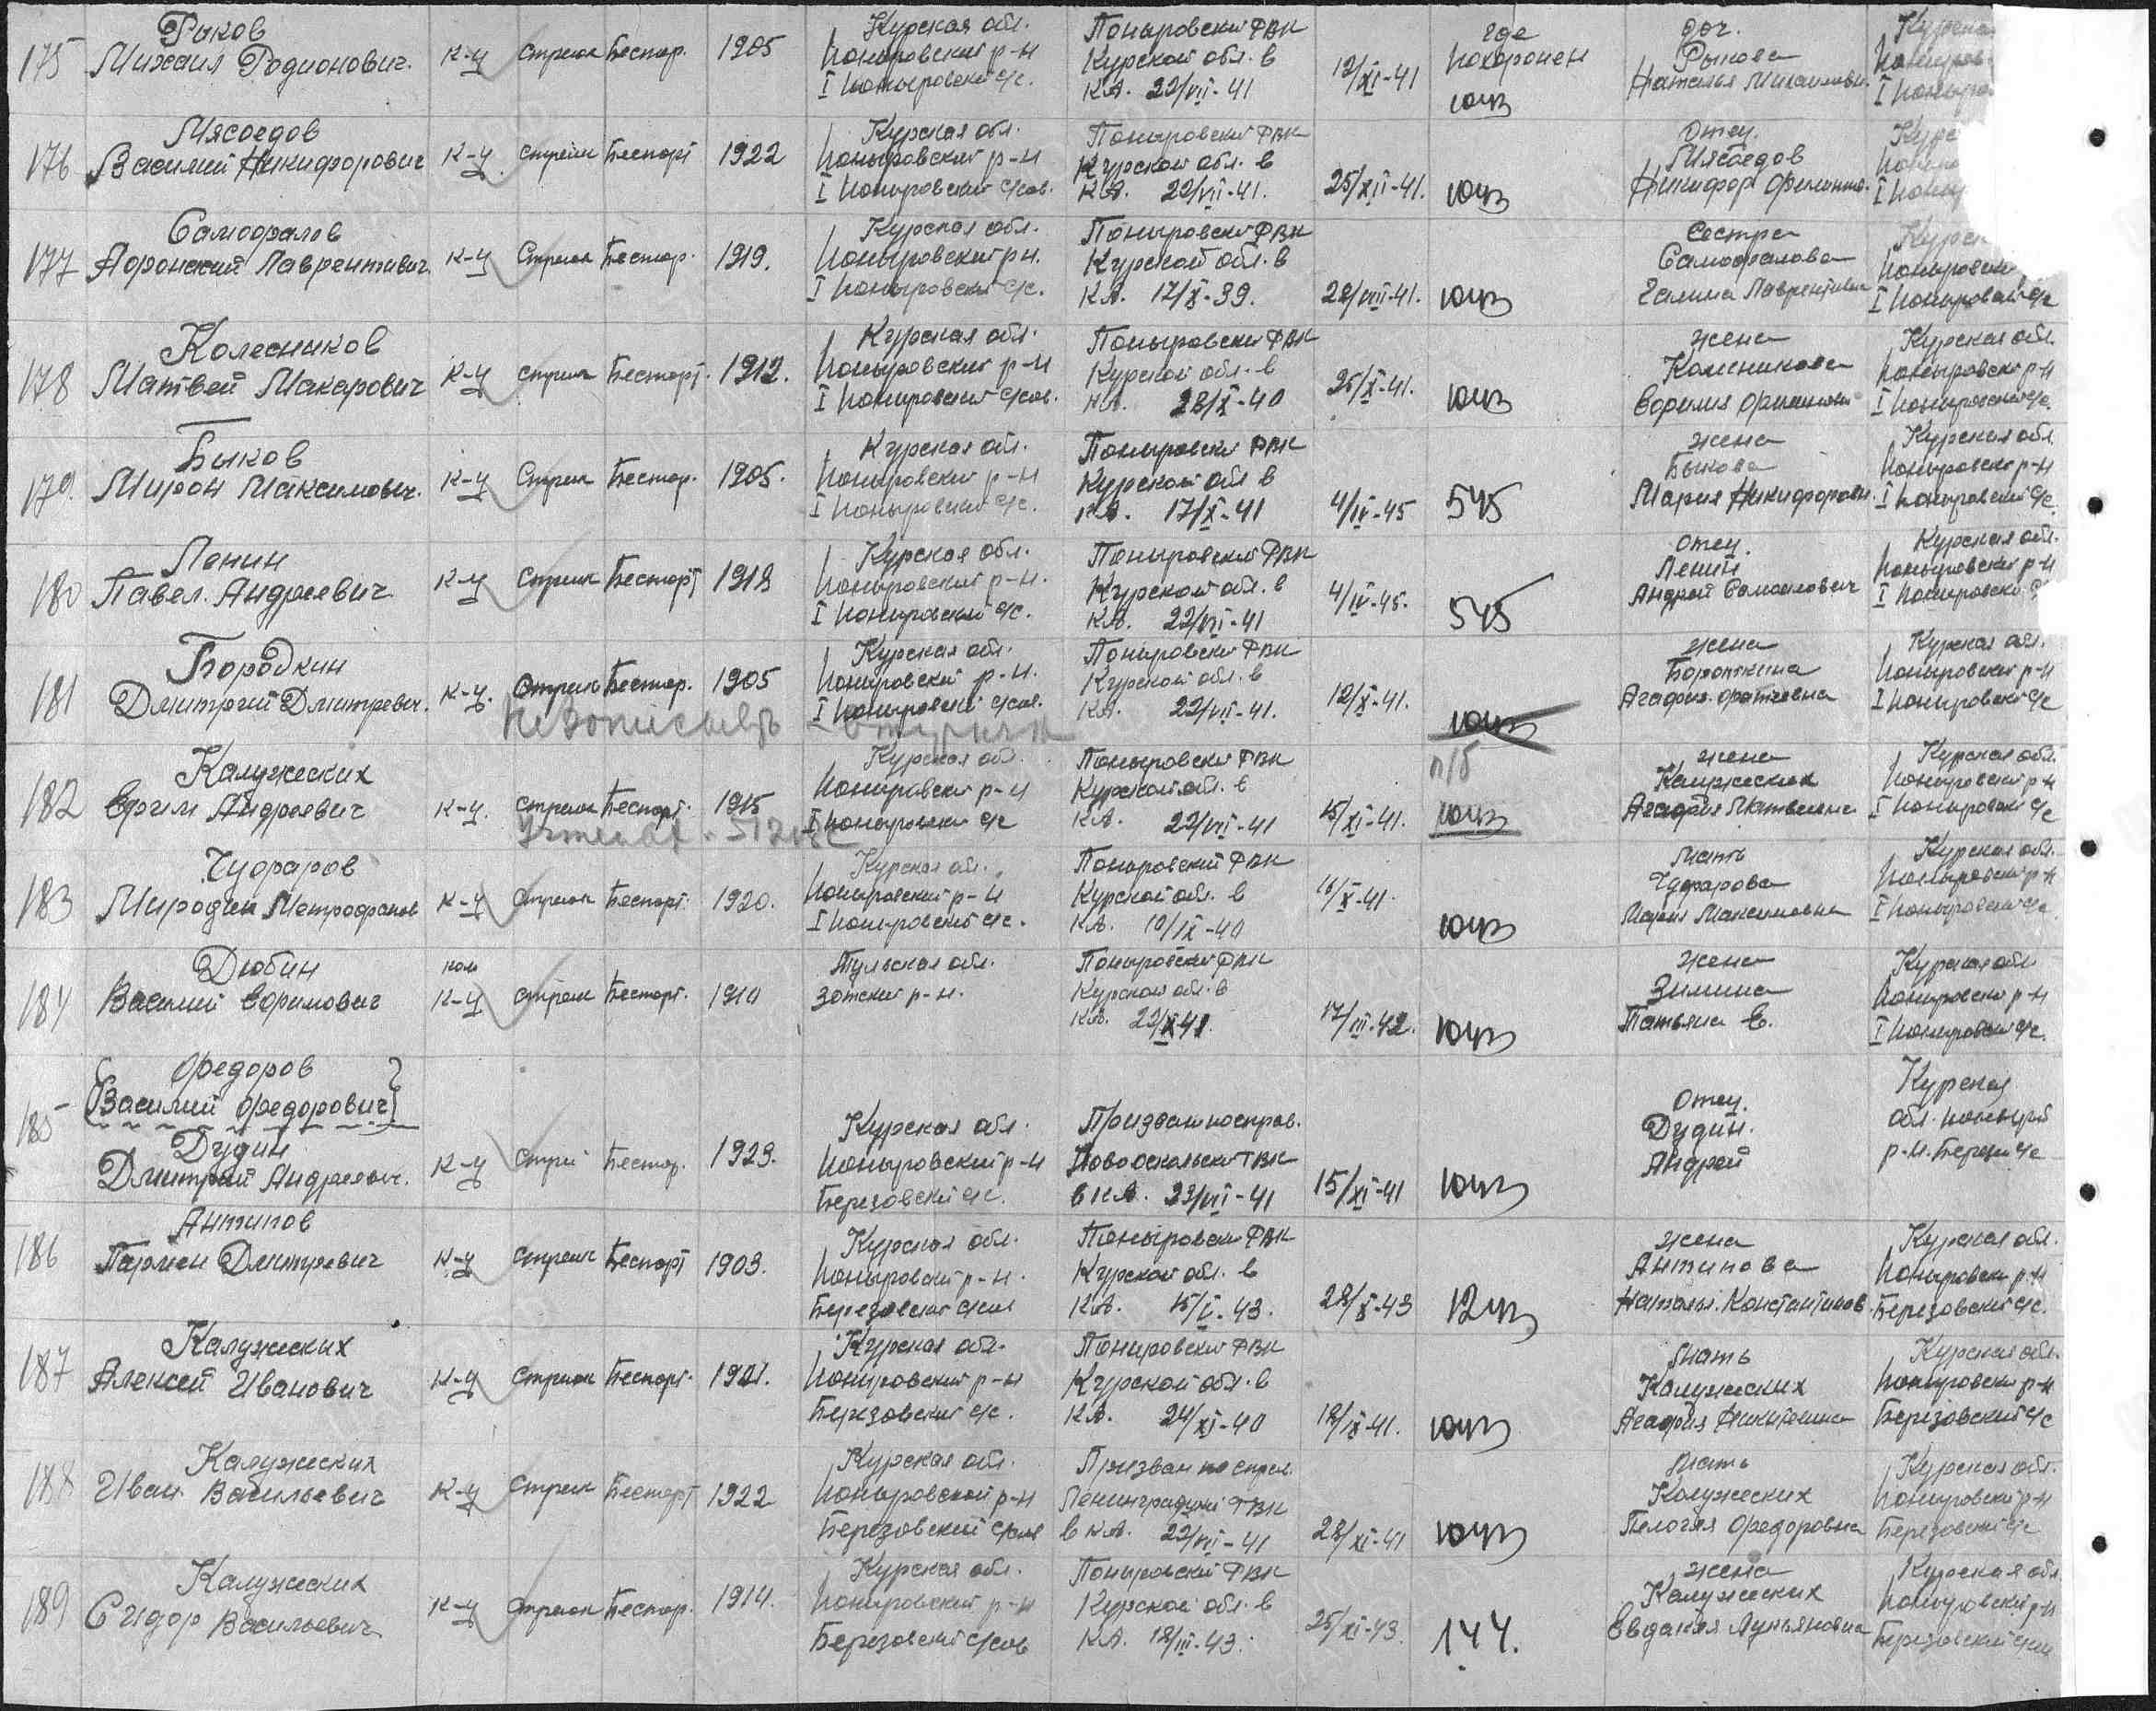 175
Рыков
Михаил Родионович.
к-ц стрелок Беспар. 1905
Курская обл.
Поныровский р-н
I Поныровский с/с.
Поныровский РВК
Курской обл. в
К.А. 22/VII-41
12/XI-41
где
похоронен
доч.
Рыкова
Наталья Михайловн.
176
Мясоедов
Василий Никифорович
к-ц стрелок Беспарт 1922
Курская обл.
Поныровский р-н
I Поныровский с/сов.
Поныровский РВК
Курской обл. в
К.А. 22/VII-41.
25/XII-41.
отец.
Мясоедов
Никифор
177
Самофалов
Лаврентивич
к-ц Стрелок Беспар. 1919.
Курская обл.
Поныровский р-н.
I Поныровский с/с.
Поныровский РВК
Курской обл. в
К.А. 17/X-39.
28/VIII-41.
Сестра
Самофалова
Галина Лаврентивна
I Поныровский с/с
178
Колесников
Матвей Макарович
к-ц стрелок Беспарт. 1912.
Курская обл.
Поныровский р-н
I Поныровский с/сов.
Поныровский РВК
Курской обл. в
К.А. 28/X-40
25/X-41.
жена
Колесникова
Курская обл.
Поныровский р-н
I Поныровский с/с.
179.
Быков
Мирон Максимович.
к-ц Стрелок Беспар. 1905.
Курская обл.
Поныровский р-н
I Поныровский с/с.
Поныровский РВК
Курской обл в
К.А. 17/X-41
4/IV-45
545
жена
Быкова
Мария Никифоровн.
Курская обл
Поныровский р-н
I Поныровский с/с.
180
Ленин
Павел. Андреевич
к-ц Стрелок Беспарт 1918
Курская обл.
Поныровский р-н.
I Поныровский с/с.
Поныровский РВК
Курской обл. в
К.А. 22/VII-41
4/IV-45.
545
отец.
Ленин
Андрей Самойлович
Курская обл.
Поныровский р-н
I Поныровский
181
Бородкин
Дмитрий Дмитревич.
к-ц. Стрелок Беспар. 1905
Курская обл.
Поныровский р-н.
I Поныровский с/сов.
Поныровский РВК
Курской обл. в
К.А. 22/VII-41.
12/X-41.
жена
Бородкина
Агафия
Курская обл.
Поныровский р-н
I Поныровский с/с
182
Калужских
Ефим Андреевич
к-ц. стрелок Беспарт. 1915
Курская обл.
Поныровский р-н
I Поныровский с/с
Поныровский РВК
Курской обл. в
К.А. 22/VII-41
15/XI-41.
п/б
жена
Калужских
Агафия Матвеевна
Курская обл.
Поныровский р-н
I Поныровский с/с
183
Чуфаров
к-ц Стрелок Беспарт. 1920.
Курская обл.
Поныровский р-н
I Поныровский с/с.
Поныровский РВК
Курской обл. в
К.А. 10/IX-40
16/X-41.
мать
Чуфарова
Мария Максимовна
Курская обл.
Поныровский р-н
I Поныровский с/с
184
Дюбин
Василий Ефимович
к-ц стрелок Беспарт. 1910
Тульская обл.
р-н.
Поныровский РВК
Курской обл. в
К.А. 23/X-41.
17/III-42.
жена
Зимина
Татьяна Е.
Курская обл
Поныровский р-н
I Поныровский с/с.
185
Федоров
(Василий Федорович)
Дудин
Дмитрий Андреевич.
к-ц Стрел Беспар. 1923.
Курская обл.
Поныровский р-н
Березовский с/с.
Призван неспров.
Новооскольский ГВК
в К.А. 23/VII-41
15/XI-41
отец.
Дудин.
Андрей
Курская
обл. Поныров
р-н. Березов с/с
186
Антипов
Пармен Дмитревич
к-ц стрелок Беспарт 1903.
Курская обл.
Поныровский р-н.
Березовский с/сов
Поныровский РВК
Курской обл. в
К.А. 15/II-43.
28/X-43
жена
Антипова
Наталья. Константинов.
Курская обл.
Поныровский р-н
Березовский с/с.
187
Калужских
Алексей Иванович
к-ц стрелок Беспарт. 1921.
Курская обл.
Поныровский р-н
Березовский с/с.
Поныровский РВК
Курской обл. в
К.А. 24/XI-40
18/IX-41.
мать
Калужских
Агафия Никитишна
Курская обл.
Поныровский р-н
Березовский с/с
188
Калужских
Иван Васильевич
к-ц стрелок Беспарт 1922
Курская обл.
Поныровской р-н
Березовский с/сов
Призван не спров.
Ленинградский ГВК
в К.А. 22/VII-41
28/XI-41
мать
Калужских
Пелогия Федоровна
Курская обл.
Поныровский р-н
Березовский с/с
189
Калужских
Сидор Васильевич
к-ц стрелок Беспар. 1914.
Курская обл.
Поныровский р-н
Березовский с/сов
Поныровский РВК
Курской обл. в
К.А. 18/III-43.
25/XI-43.
144.
жена
Калужских
Евдакия Лукьяновна
Курская обл
Поныровский р-н
Березовский с/сов